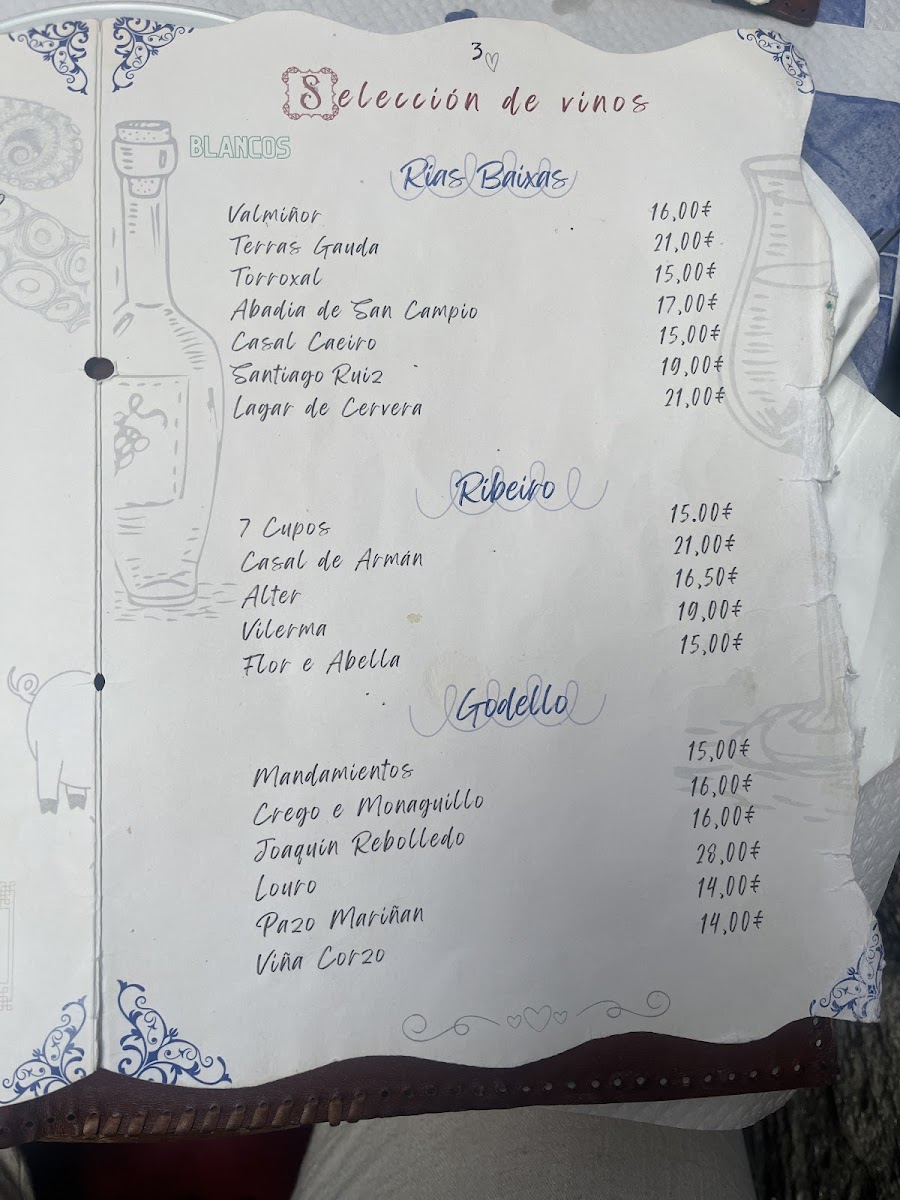 3
Selección de vinos
BLANCOS
Rías Baixas
Valmiñor 16,00€
Terras Gauda 21,00€
Torroxal 15,00€
Abadia de San Campio 17,00€
Casal Caeiro 15,00€
Santiago Ruiz 19,00€
Lagar de Cervera 21,00€
Ribeiro
7 Cupos 15.00€
Casal de Armán 21,00€
Alter 16,50€
Vilerma 19,00€
Flor e Abella 15,00€
Godello
Mandamientos 15,00€
Crego e Monaguillo 16,00€
Joaquin Rebolledo 16,00€
Louro 28,00€
Pazo Mariñan 14,00€
Viña Corzo 14,00€